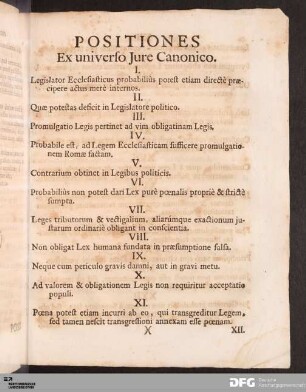 POSITIONES
Ex universo Jure Canonico.
I.
Legislator Ecclesiasticus probabiliùs potest etiam directè præ-
cipere actus merè internos.
II.
Quæ potestas deficit in Legislatore politico.
III.
Promulgatio Legis pertinet ad vim obligatinam Legis,
IV.
Probabile est, ad Legem Ecclesiasticam sufficere promulgatio-
nem Romæ factam,
V.
Contrarium obtinet in Legibus politicis.
VI.
Probabiliùs non potest dari Lex purè pœnalis propriè & strictè
sumpta.
VII.
Leges tributorum & vectigalium, aliarùmque exactionum ju-
starum ordinariè obligant in conscientia.
VIII.
Non obligat Lex humana fundata in præsumptione falsa.
IX.
Neque cum periculo gravis damni, aut in gravi metu.
X.
Ad valorem & obligationem Legis non requiritur acceptatio
populi.
XI.
Pœna potest etiam incurri ab eo, qui transgreditur Legem,
sed tamen nescit transgressioni annexam esse pœnam.
X XII.
DFG